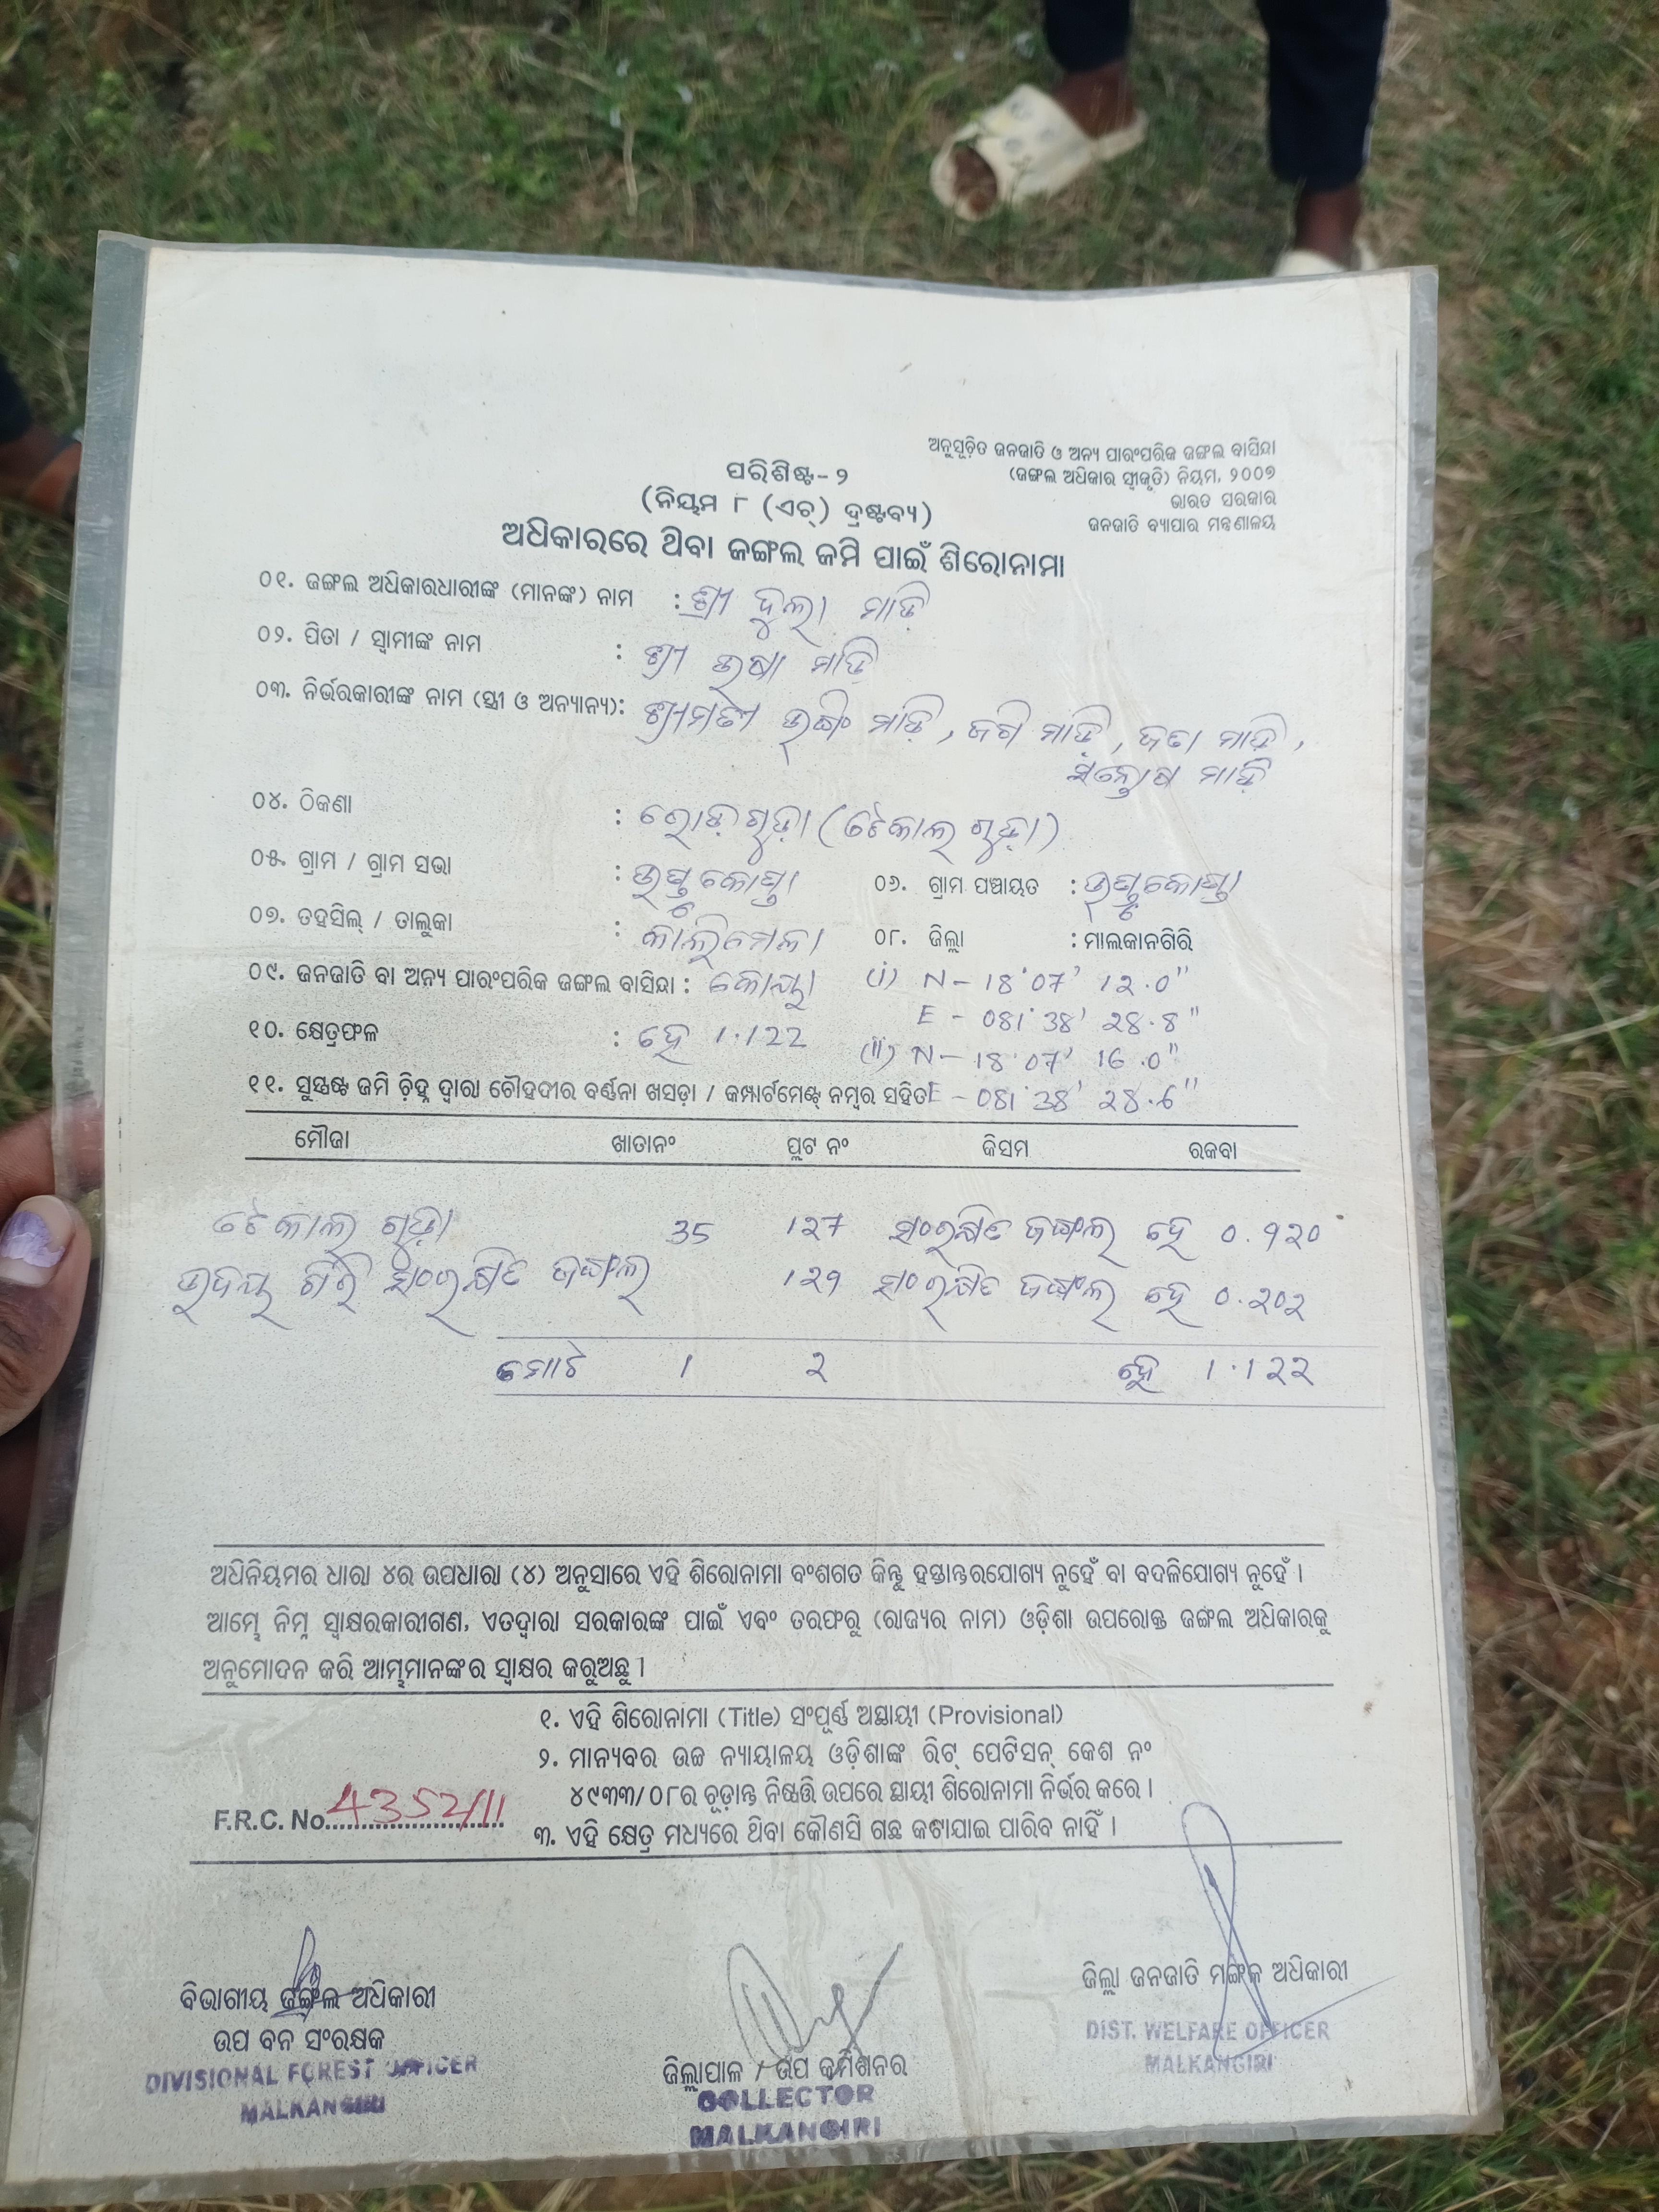 ଅନୁସୂଚିତ ଜନଜାତି ଓ ଅନ୍ୟ ପାରଂପରିକ ଜଙ୍ଗଲ ବାସିନ୍ଦା
(ଜଙ୍ଗଲ ଅଧିକାର ସ୍ୱୀକୃତି) ନିୟମ, ୨୦୦୭
ଭାରତ ସରକାର
ଜନଜାତି ବ୍ୟାପାର ମନ୍ତ୍ରଣାଳୟ
ପରିଶିଷ୍ଟ-୨
(ନିୟମ ୮ (ଏଚ୍) ଦ୍ରଷ୍ଟବ୍ୟ)
ଅଧିକାରରେ ଥିବା ଜଙ୍ଗଲ ଜମି ପାଇଁ ଶିରୋନାମା
୦୧. ଜଙ୍ଗଲ ଅଧିକାରଧାରୀଙ୍କ (ମାନଙ୍କ) ନାମ : ଶ୍ରୀ ଦୁଲା ମାଡ଼ି
୦୨. ପିତା / ସ୍ୱାମୀଙ୍କ ନାମ : ଶ୍ରୀ ଉଷା ମାଡ଼ି
୦୩. ନିର୍ଭରକାରୀଙ୍କ ନାମ (ସ୍ତ୍ରୀ ଓ ଅନ୍ୟାନ୍ୟ): ଶ୍ରୀମତୀ ମାଡ଼ି, ଜଗି ମାଡ଼ି, ଜତା ମାଡ଼ି,
ସନ୍ତୋଷ ମାଡ଼ି
୦୪. ଠିକଣା : ରୋଡ଼ଗୁଡ଼ା (ଟେକାଲ୍ ଗୁଡ଼ା)
୦୫. ଗ୍ରାମ / ଗ୍ରାମ ସଭା : ୦୬. ଗ୍ରାମ ପଞ୍ଚାୟତ :
୦୭. ତହସିଲ୍ / ତାଲୁକା : କାଲିମେଳା ୦୮. ଜିଲ୍ଲା : ମାଲକାନଗିରି
୦୯. ଜନଜାତି ବା ଅନ୍ୟ ପାରଂପରିକ ଜଙ୍ଗଲ ବାସିନ୍ଦା : କୋୟା (i) N - 18°07' 12.0"
E - 081°38' 28.8"
୧୦. କ୍ଷେତ୍ରଫଳ : ହେ 1.122 (ii) N - 18°07' 16.0"
୧୧. ସୁସ୍ପଷ୍ଟ ଜମି ଚିହ୍ନ ଦ୍ୱାରା ଚୌହଦୀର ବର୍ଣ୍ଣନା ଖସଡ଼ା / କମ୍ପାର୍ଟମେଣ୍ଟ୍ ନମ୍ବର ସହିତ E - 081°38' 28.6"
ମୌଜା ଖାତାନଂ ପ୍ଲଟ ନଂ କିସମ ରକବା
ଟେକାଲ୍ ଗୁଡ଼ା 35 127 ସଂରକ୍ଷିତ ଜଙ୍ଗଲ ହେ 0.920
ଉଦୟ ଗିରି ସଂରକ୍ଷିତ ଜଙ୍ଗଲ 129 ସଂରକ୍ଷିତ ଜଙ୍ଗଲ ହେ 0.202
ମୋଟ 1 2 ହେ 1.122
ଅଧିନିୟମର ଧାରା ୪ର ଉପଧାରା (୪) ଅନୁସାରେ ଏହି ଶିରୋନାମା ବଂଶଗତ କିନ୍ତୁ ହସ୍ତାନ୍ତରଯୋଗ୍ୟ ନୁହେଁ ବା ବଦଳିଯୋଗ୍ୟ ନୁହେଁ ।
ଆମ୍ଭେ ନିମ୍ନ ସ୍ୱାକ୍ଷରକାରୀଗଣ, ଏତଦ୍ୱାରା ସରକାରଙ୍କ ପାଇଁ ଏବଂ ତରଫରୁ (ରାଜ୍ୟର ନାମ) ଓଡ଼ିଶା ଉପରୋକ୍ତ ଜଙ୍ଗଲ ଅଧିକାରକୁ
ଅନୁମୋଦନ କରି ଆମ୍ଭମାନଙ୍କର ସ୍ୱାକ୍ଷର କରୁଅଛୁ ।
୧. ଏହି ଶିରୋନାମା (Title) ସଂପୂର୍ଣ୍ଣ ଅସ୍ଥାୟୀ (Provisional)
୨. ମାନ୍ୟବର ଉଚ୍ଚ ନ୍ୟାୟାଳୟ ଓଡ଼ିଶାଙ୍କ ରିଟ୍ ପେଟିସନ୍ କେଶ ନଂ
୪୯୩୩/୦୮ର ଚୂଡ଼ାନ୍ତ ନିଷ୍ପତ୍ତି ଉପରେ ସ୍ଥାୟୀ ଶିରୋନାମା ନିର୍ଭର କରେ ।
F.R.C. No. 4352/11
୩. ଏହି କ୍ଷେତ୍ର ମଧ୍ୟରେ ଥିବା କୌଣସି ଗଛ କଟାଯାଇ ପାରିବ ନାହିଁ ।
ବିଭାଗୀୟ ଜଙ୍ଗଲ ଅଧିକାରୀ
ଉପ ବନ ସଂରକ୍ଷକ
DIVISIONAL FOREST OFFICER
MALKANGIRI
ଜିଲ୍ଲାପାଳ / ଉପ କମିଶନର
COLLECTOR
MALKANGIRI
ଜିଲ୍ଲା ଜନଜାତି ମଙ୍ଗଳ ଅଧିକାରୀ
DIST. WELFARE OFFICER
MALKANGIRI